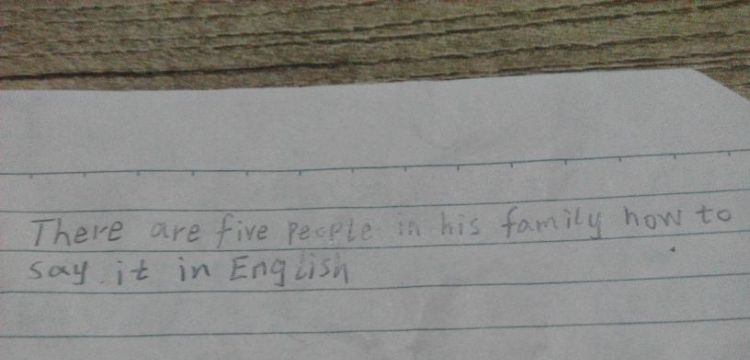 There are five people in his family how to
say it in English